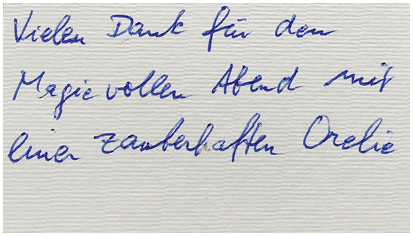 Vielen Dank für den
Magievollen Abend mit
einer zauberhaften Orelie